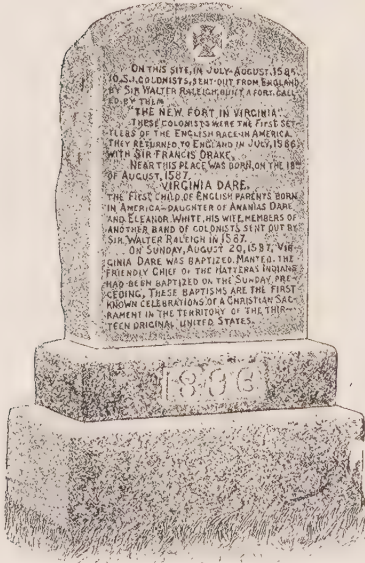 ON THIS SITE, IN JULY-AUGUST, 1585,
COLONISTS, SENT OUT FROM ENGLAND
BY SIR WALTER RALEIGH, BUILT A FORT, CALL-
ED BY THEM
"THE NEW FORT IN VIRGINIA".
THESE COLONISTS WERE THE FIRST SET-
TLERS OF THE ENGLISH RACE IN AMERICA.
THEY RETURNED TO ENGLAND IN JULY, 1586
WITH SIR FRANCIS DRAKE.
NEAR THIS PLACE WAS BORN, ON THE 18TH
OF AUGUST, 1587.
VIRGINIA DARE.
THE FIRST CHILD OF ENGLISH PARENTS BORN
IN AMERICA-DAUGHTER OF ANANIAS DARE
AND ELEANOR WHITE, HIS WIFE, MEMBERS OF
ANOTHER BAND OF COLONISTS SENT OUT BY
SIR WALTER RALEIGH IN 1587.
ON SUNDAY, AUGUST 20, 1587, VIR-
GINIA DARE WAS BAPTIZED. MANTEO, THE
FRIENDLY CHIEF OF THE HATTERAS INDIANS
HAD BEEN BAPTIZED ON THE SUNDAY PRE-
CEDING, THESE BAPTISMS ARE THE FIRST
KNOWN CELEBRATIONS OF A CHRISTIAN SAC-
RAMENT IN THE TERRITORY OF THE THIR-
TEEN ORIGINAL UNITED STATES.
1896